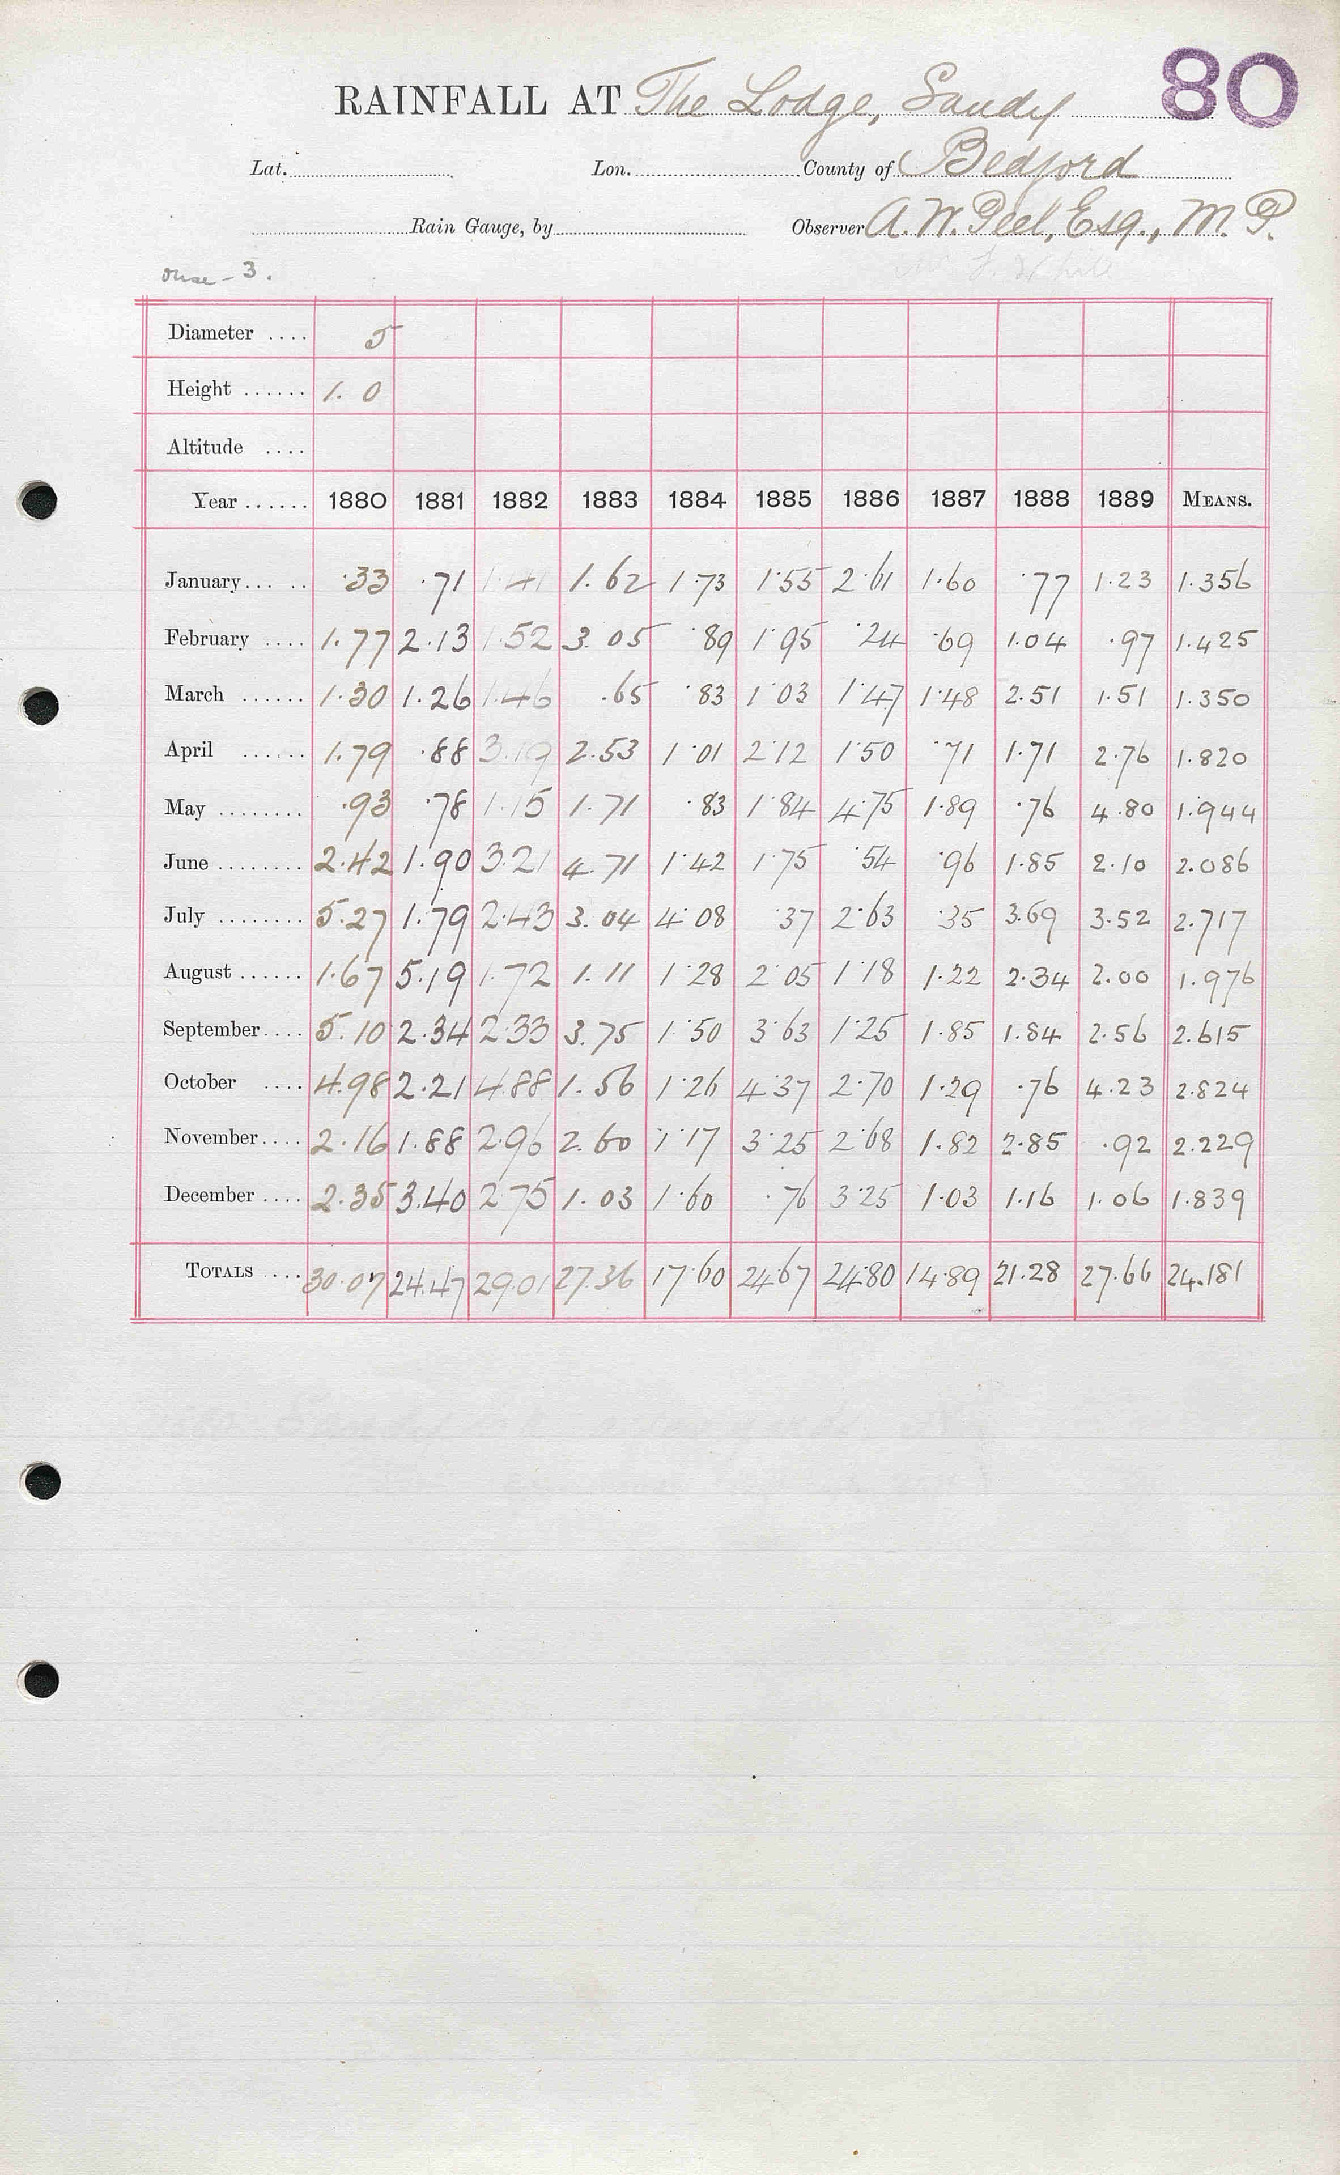 80
RAINFALL AT The Lodge, Sandy
Lat. Lon. County of Bedford
Rain Gauge, by Observer A. W. Peel, Esq., M. P.
Ouse - 3.
Diameter .... 5
Height ...... 1. 0
Altitude ....
Year ...... 1880 1881 1882 1883 1884 1885 1886 1887 1888 1889 MEANS.
January ... .. .33 .71 1.41 1.62 1.73 1.55 2.61 1.60 .77 1.23 1.356
February .... 1.77 2.13 1.52 3.05 .89 1.95 .24 .69 1.04 .97 1.425
March ...... 1.30 1.26 1.46 .65 .83 1.03 1.47 1.48 2.51 1.51 1.350
April ...... 1.79 .88 3.19 2.53 1.01 2.12 1.50 .71 1.71 2.76 1.820
May ........ .93 .78 1.15 1.71 .83 1.84 4.75 1.89 .76 4.80 1.944
June ........ 2.42 1.90 3.21 4.71 1.42 1.75 .54 .96 1.85 2.10 2.086
July ........ 5.27 1.79 2.43 3.04 4.08 .37 2.63 .35 3.69 3.52 2.717
August ...... 1.67 5.19 1.72 1.11 1.28 2.05 1.18 1.22 2.34 2.00 1.976
September .... 5.10 2.34 2.33 3.75 1.50 3.63 1.25 1.85 1.84 2.56 2.615
October .... 4.98 2.21 4.88 1.56 1.26 4.37 2.70 1.29 .76 4.23 2.824
November .... 2.16 1.88 2.96 2.60 1.17 3.25 2.68 1.82 2.85 .92 2.229
December .... 2.35 3.40 2.75 1.03 1.60 .76 3.25 1.03 1.16 1.06 1.839
TOTALS ... 30.07 24.47 29.01 27.36 17.60 24.67 24.80 14.89 21.28 27.66 24.181